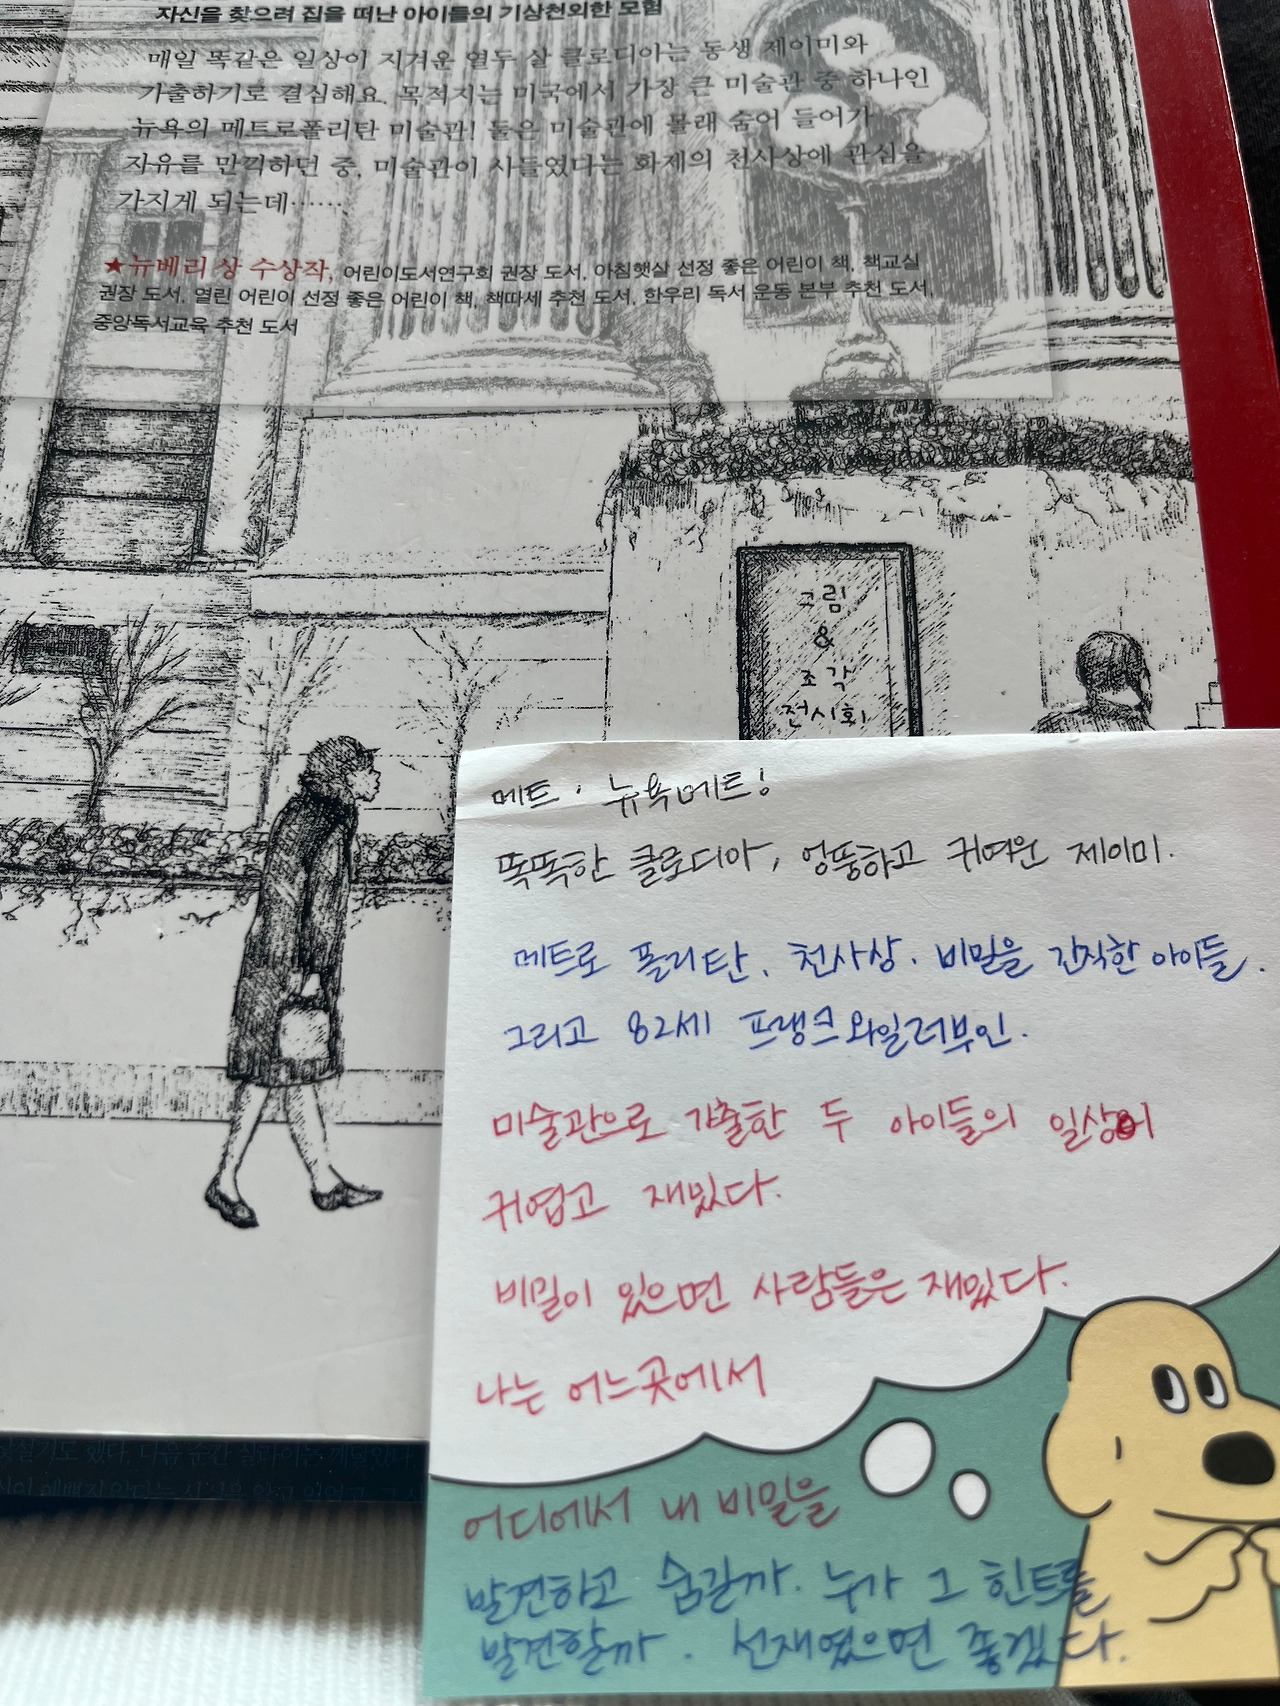 자신을 찾으려 집을 떠난 아이들의 기상천외한 모험
매일 똑같은 일상이 지겨운 열두 살 클로디아는 동생 제이미와
가출하기로 결심해요. 목적지는 미국에서 가장 큰 미술관 중 하나인
뉴욕의 메트로폴리탄 미술관! 둘은 미술관에 몰래 숨어 들어가
자유를 만끽하던 중, 미술관이 사들였다는 화제의 천사상에 관심을
가지게 되는데……
★뉴베리 상 수상작, 어린이도서연구회 권장 도서, 아침햇살 선정 좋은 어린이 책, 책교실
권장 도서, 열린 어린이 선정 좋은 어린이 책, 책따세 추천 도서, 한우리 독서 운동 본부 추천 도서,
중앙독서교육 추천 도서
그림
&
조각
전시회
메트. 뉴욕메트!
똑똑한 클로디아, 엉뚱하고 귀여운 제이미.
메트로 폴리탄. 천사상. 비밀을 간직한 아이들.
그리고 82세 프랭크와일러부인.
미술관으로 가출한 두 아이들의 일상이
귀엽고 재밌다.
비밀이 있으면 사람들은 재밌다.
나는 어느곳에서
어디에서 내 비밀을
발견하고 숨길까. 누가 그 힌트를
발견할까. 선재였으면 좋겠다.
했다, 다음 순간